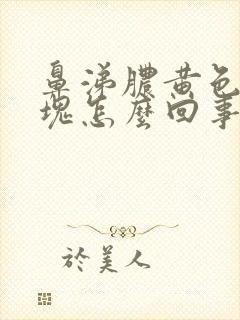 鼻涕膿黄色
塊怎麼回事
於美人